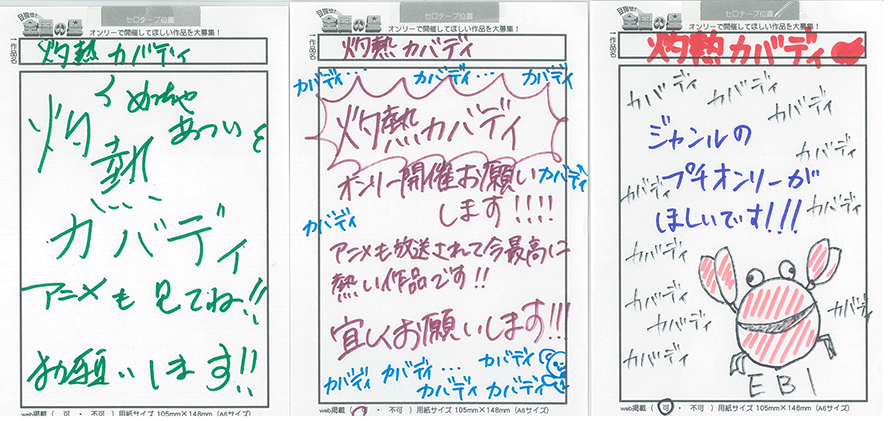 目指せ!
セロテープ位置
オンリーで開催してほしい作品を大募集!
作品名
灼熱カバディ
めっちゃ
あつい
灼
熱
カバディ
アニメも見てね!!
お願いします!!
web掲載(可・不可)用紙サイズ 105mm×148mm(A6サイズ)
目指せ!
セロテープ位置
オンリーで開催してほしい作品を大募集!
作品名
灼熱カバディ
カバディ… カバディ… カバディ
灼熱カバディ
オンリー開催お願い カバディ
します!!!!
カバディ
アニメも放送されて今最高に
熱い作品です!!
宜しくお願いします!!!
カバディ カバディ… カバディ
カバディ カバディ
web掲載(可・不可)用紙サイズ 105mm×148mm(A6サイズ)
目指せ!
セロテープ位置
オンリーで開催してほしい作品を大募集!
作品名
灼熱カバディ
カバディ カバディ カバディ
ジャンルの
カバディ
プチオンリーが
カバディ
ほしいです!!!
カバディ
カバディ
カバディ
カバディ
カバディ
カバディ
EBI
web掲載(可・不可)用紙サイズ 105mm×148mm(A6サイズ)